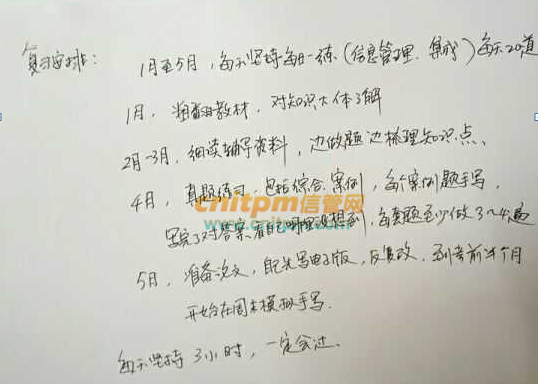 复习安排：
1月至5月，每天坚持每日一练（信息管理、集成）每天20道
1月，粗翻教材，对知识大体了解
2月-3月，细读辅导资料，边做题边梳理知识点、
4月，真题练习，包括综合、案例，每个案例题手写，
cnitpm信管网
写完了对答案，看自己哪里没想到，每套题至少做3~4遍
www.cnitpm.com
5月，准备论文，首先写电子版，反复改，到考前半个月
开始在周末模拟手写.
每天坚持3小时，一定会过.